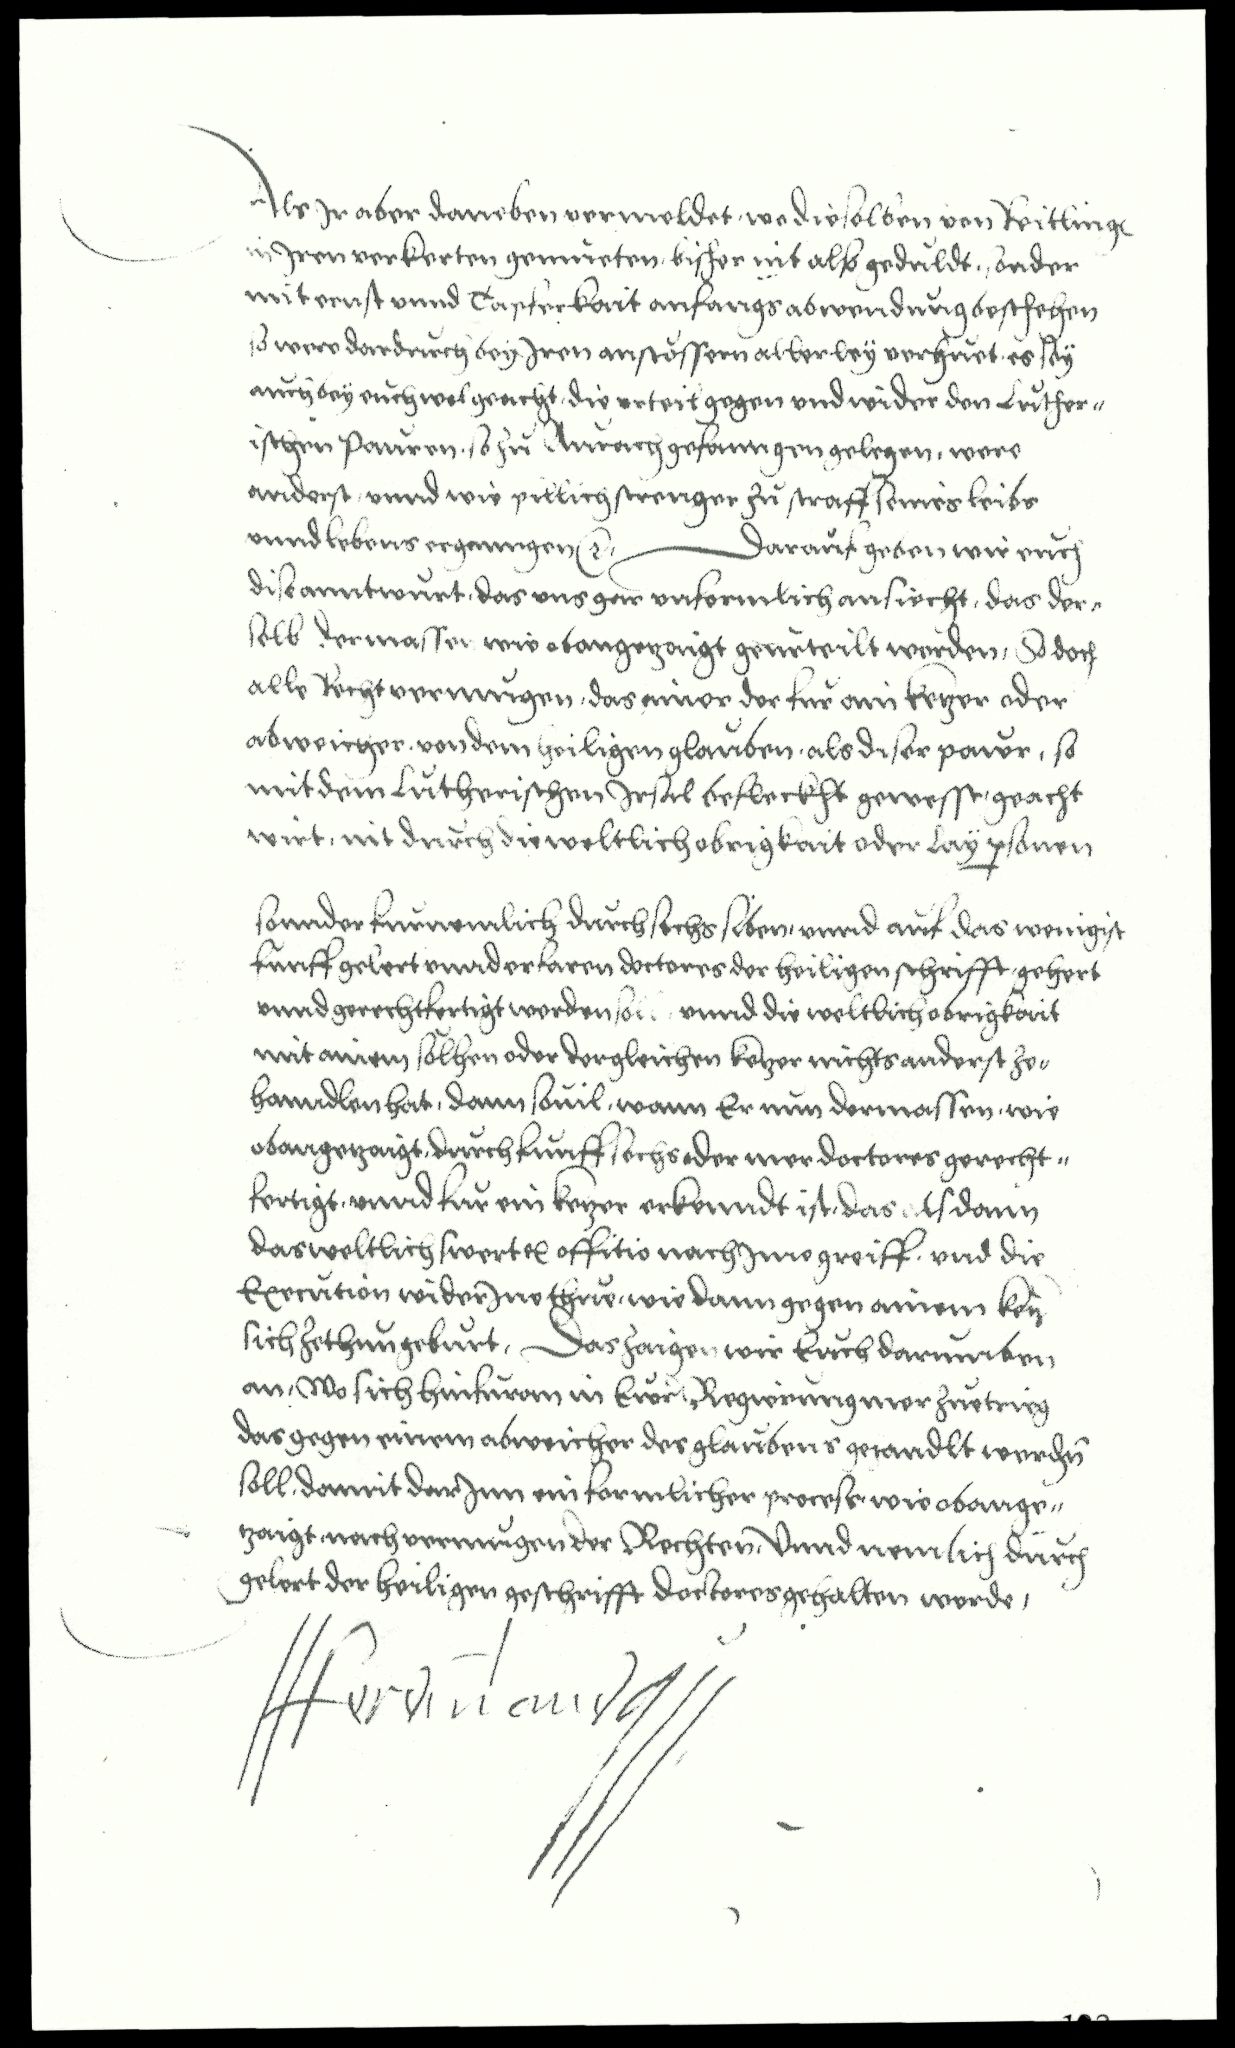 Als Ir aber daneben vermeldet, wo dieselben von Reitling
in Iren verkerten gemueten bisher nit also geduldt, sonder
mit ernst unnd Tapferkait anfangs abwendung beschehen
so were dardurch bey Iren anstossern allerley verhuet, es sey
auch bey euch wol geacht, die urteil gegen und wider den Luther-
ischen Pauren, so zu Aurach gefanngen gelegen, were
anderst, unnd wie pillich strenger zu straff seines leibs
unnd lebens erganngen etc. Darauf geben wir euch
dise anntwurt, das uns gar unformlich ansicht, das der-
selb dermassen wie obangezaigt geurteilt werden, So doch
alle Recht vermugen, das ainer der fur ain ketzer oder
abweicher von dem heiligen glauben, als diser paur, so
mit dem Lutherischen Irsal befleckht gewesst, geacht
wirt, nit durch die weltlich obrigkait oder Lay psonen
sonnder furnemlich durch sechs siben, unnd auf das wenigist
funff gelert unnd erfaren doctores der heiligen schrifft gehert
unnd gerechtfertigt werden soll unnd die weltlich obrigkait
mit ainem solhen oder dergleichen ketzer nichts anderst ze-
hanndlen hat, dann souil, wann Er nun dermassen, wie
obangetzaigt, durch funff sechs oder mer doctores gerecht-
fertigt, unnd fur ein ketzer erkenndt ist, das alsdann
das weltlich swert ex offitio nach Ime greiff, und die
Execution wider Ine thue, wie dann gegen ainem ketz
sich zethun geburt, Das zaigen wir Euch darumben
an, Wo sich hinfuran in Eur Regierung mer zuetrieg
das gegen einem abweicher des glaubens gehandlt werden
soll, damit darInn ein formlicher process, wie obange-
tzaigt, nach vermugen der Rechten, Unnd nemlich durch
gelert der heiligen geschrifft doctores gehalten werde,
Ferdinandus